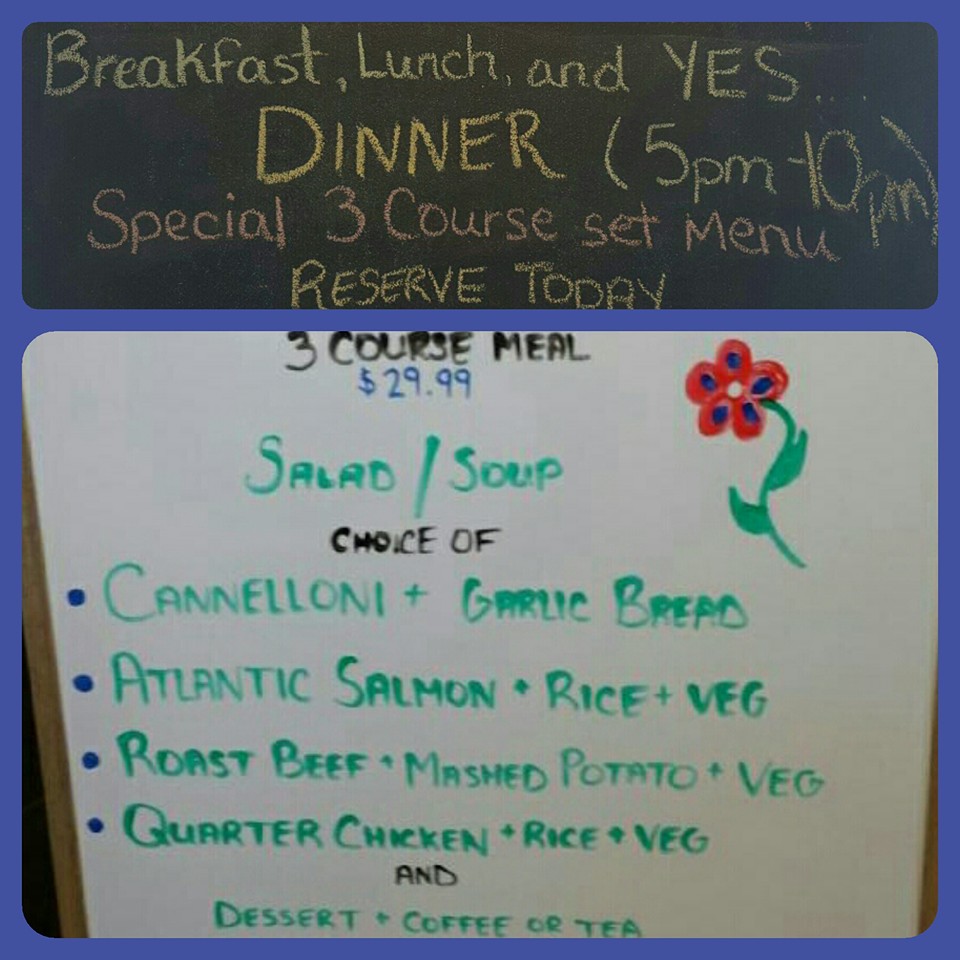 Breakfast, Lunch, and YES....
DINNER (5pm-10pm)
Special 3 Course set Menu
RESERVE TODAY
3 COURSE MEAL
$29.99
SALAD / SOUP
CHOICE OF
• CANNELLONI + GARLIC BREAD
• ATLANTIC SALMON + RICE + VEG
• ROAST BEEF + MASHED POTATO + VEG
• QUARTER CHICKEN + RICE + VEG
AND
DESSERT + COFFEE OR TEA